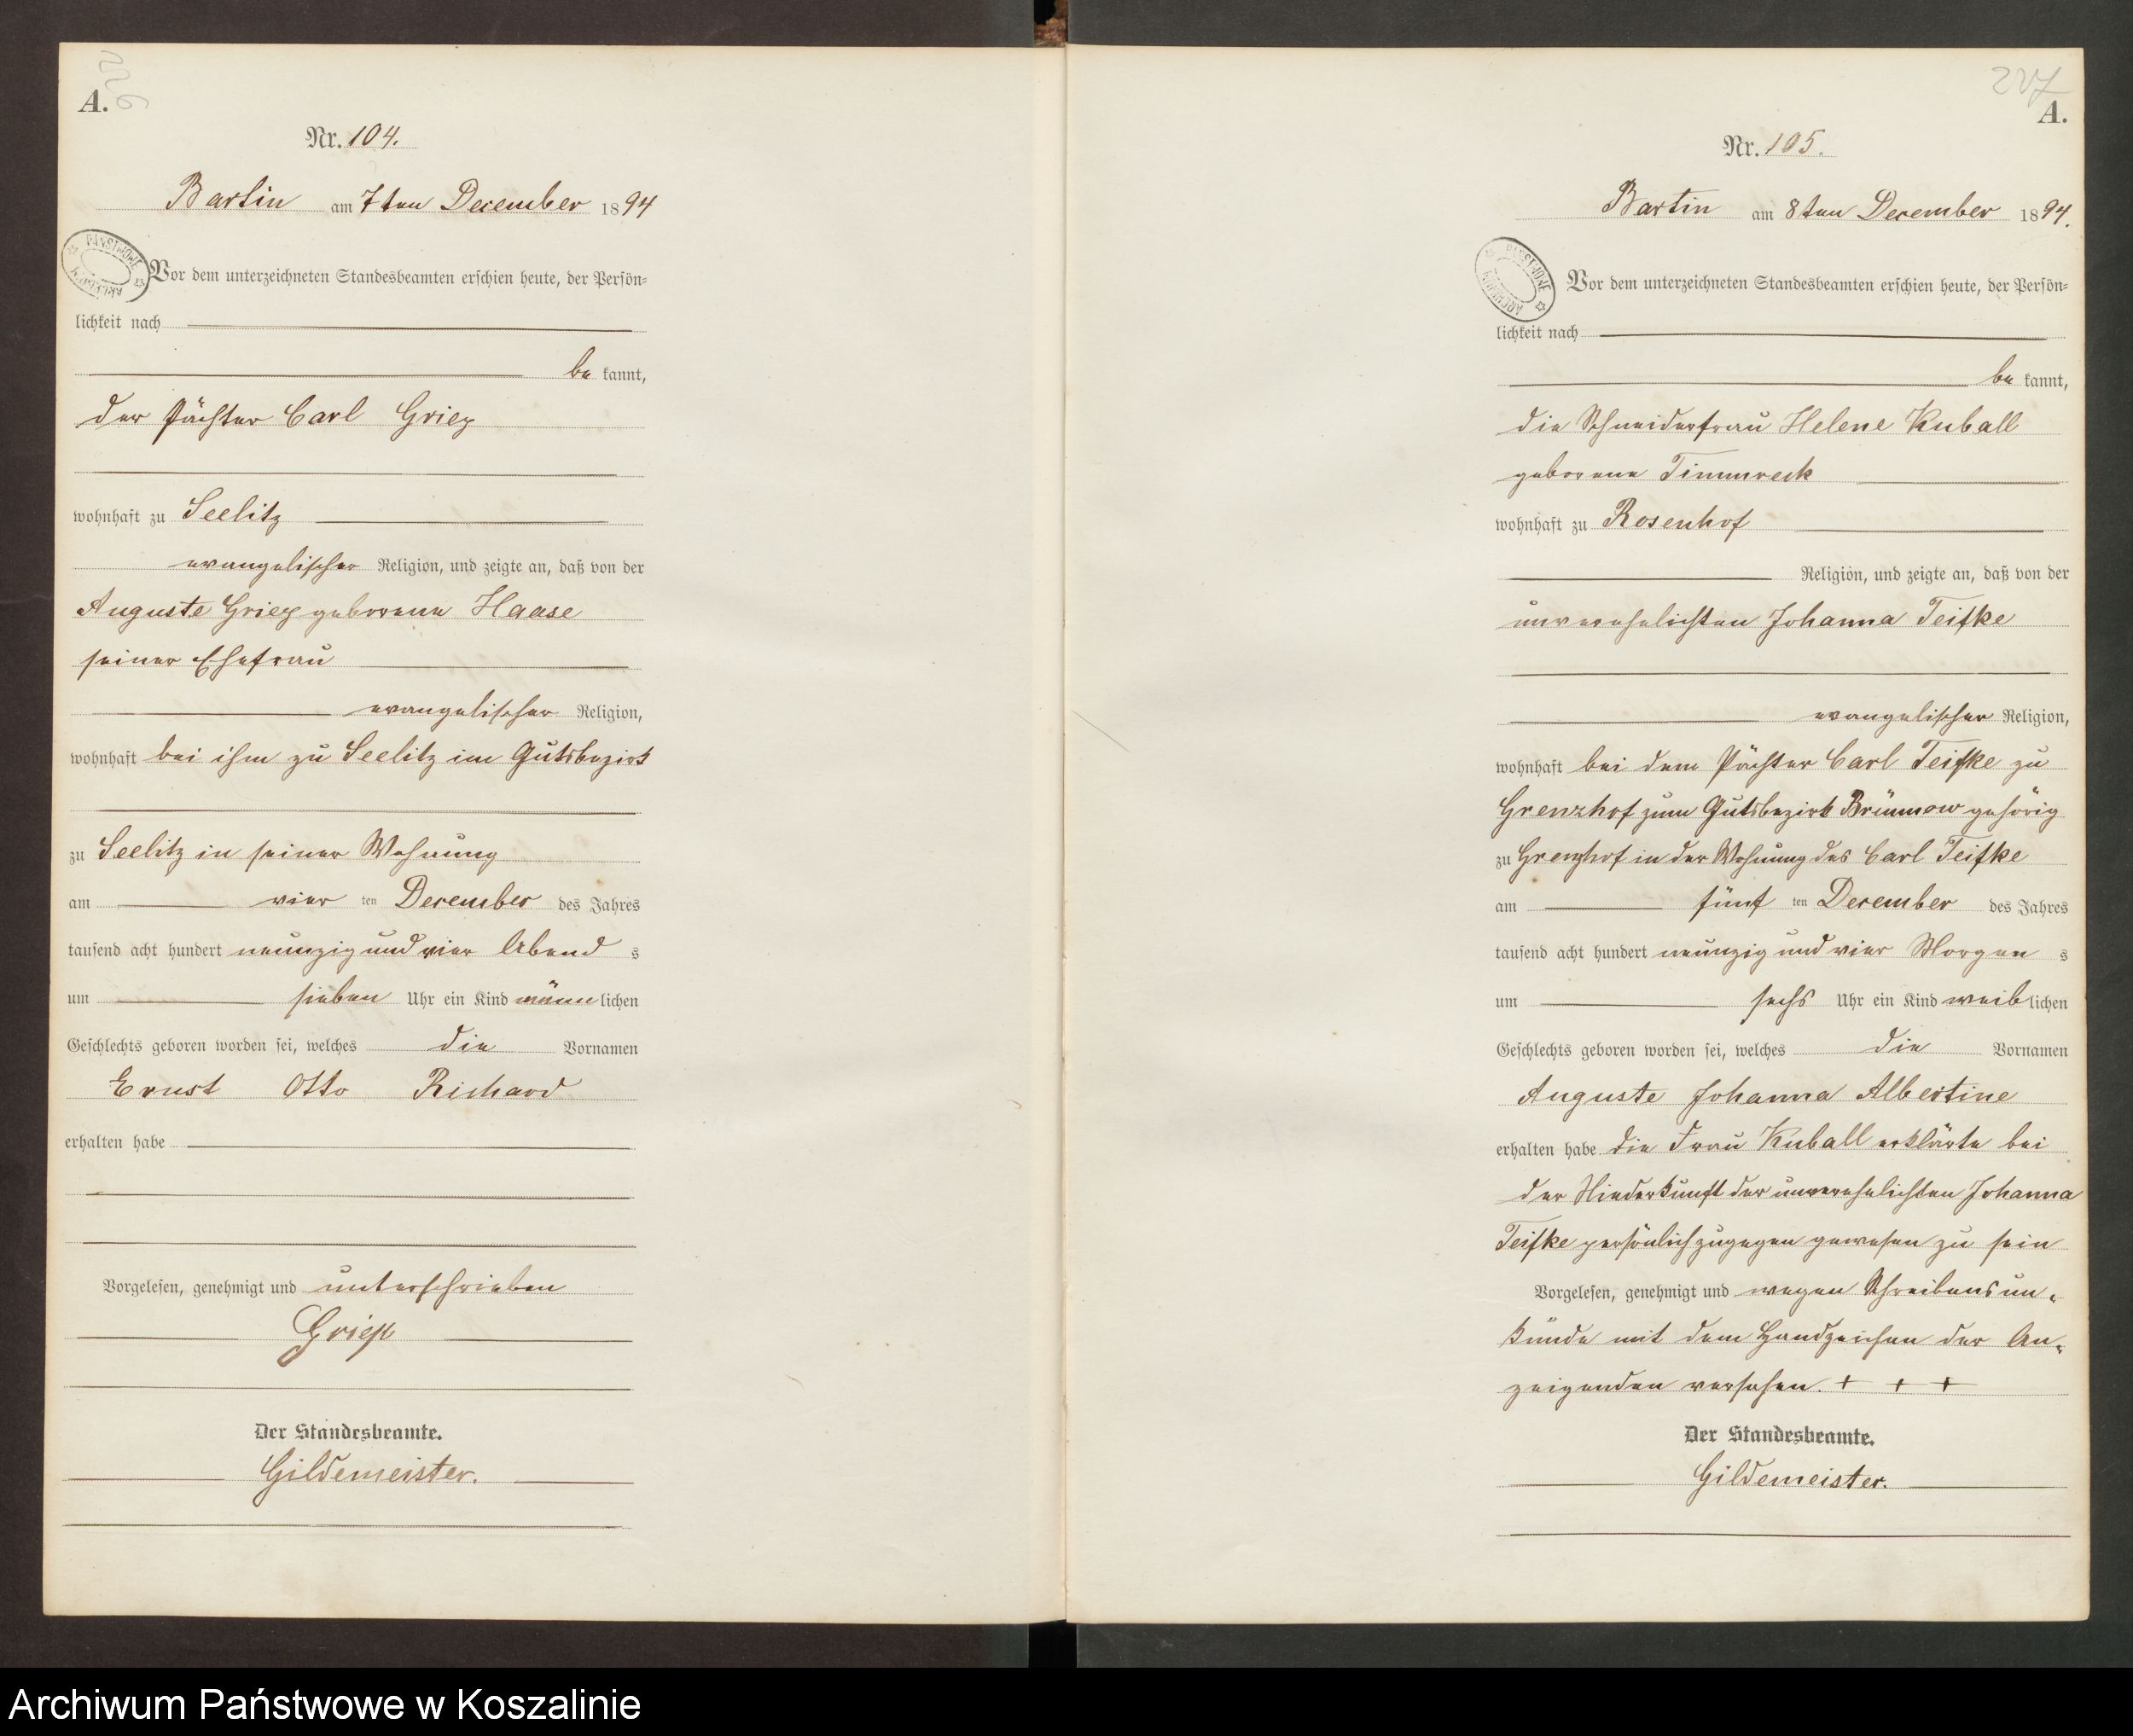 226
A.
Nr. 104.
Bartin am 7ten December 1894
PAŃSTWOWE ARCHIWUM
Vor dem unterzeichneten Standesbeamten erschien heute, der Persön=
lichkeit nach
be kannt,
der Pächter Carl Griep
wohnhaft zu Seelitz
evangelischer Religion, und zeigte an, daß von der
Auguste Griep geborene Haase
seiner Ehefrau
evangelischer Religion,
wohnhaft bei ihm zu Seelitz im Gutsbezirk
zu Seelitz in seiner Wohnung
am vier ten December des Jahres
tausend acht hundert neunzig und vier Abend s
um sieben Uhr ein Kind männ lichen
Geschlechts geboren worden sei, welches die Vornamen
Ernst Otto Richard
erhalten habe
Vorgelesen, genehmigt und unterschrieben
Griep
Der Standesbeamte.
Gildemeister.
227
A.
Nr. 105.
Bartin am 8ten December 1894.
PAŃSTWOWE ARCHIWUM
Vor dem unterzeichneten Standesbeamten erschien heute, der Persön=
lichkeit nach
be kannt,
die Schneiderfrau Helene Kuball
geborene Timmreck
wohnhaft zu Rosenhof
Religion, und zeigte an, daß von der
unverehelichten Johanna Teifke
evangelischer Religion,
wohnhaft bei dem Pächter Carl Teifke zu
Grenzhof zum Gutsbezirk Brünnow gehörig
zu Grenzhof in der Wohnung des Carl Teifke
am fünf ten December des Jahres
tausend acht hundert neunzig und vier Morgen s
um sechs Uhr ein Kind weib lichen
Geschlechts geboren worden sei, welches die Vornamen
Auguste Johanna Albertine
erhalten habe die Frau Kuball erklärte bei
der Niederkunft der unverehelichten Johanna
Teifke persönlich zugegen gewesen zu sein
Vorgelesen, genehmigt und wegen Schreibensun=
kunde mit dem Handzeichen der An=
zeigenden versehen. + + +
Der Standesbeamte.
Gildemeister.
Archiwum Państwowe w Koszalinie